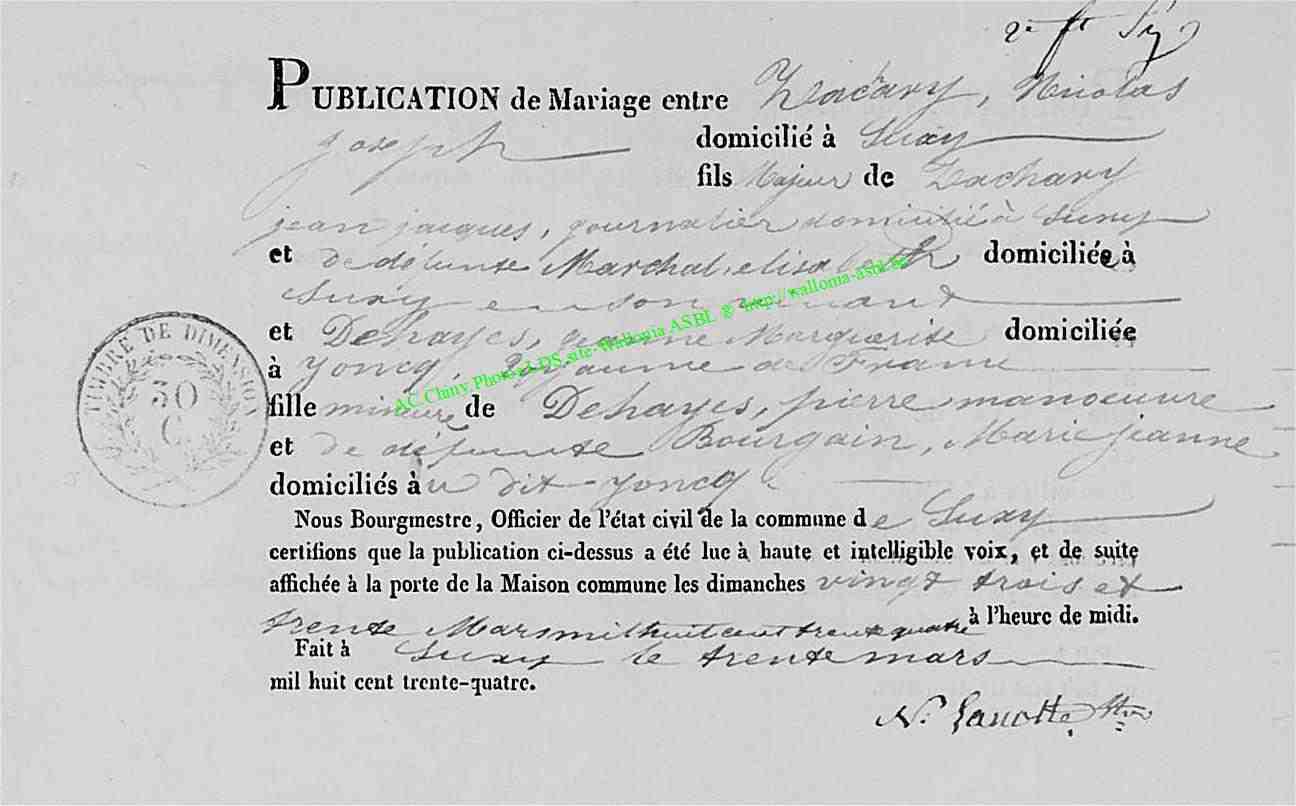 2e ft
PUBLICATION de Mariage entre Zacary, Nicolas
joseph domicilié à Suxy
fils Majeur de Zachary
jean jacques, journalier domicilié à Suxy
et de défunte Marchal, elisabeth domiciliée à
Suxy en son vivant
et Dehayes, jeanne Marguerite domiciliée
à Yoncq, Royaume de France
fille mineure de Dehayes, pierre manoeuvre
et de défunte Bourgain, Marie jeanne
domiciliés à u dit Yoncq
Nous Bourgmestre, Officier de l'état civil de la commune de Suxy
certifions que la publication ci-dessus a été lue à haute et intelligible voix, et de suite
affichée à la porte de la Maison commune les dimanches vingt trois et
trente Mars mil huit cent trente quatre à l'heure de midi.
Fait à Suxy le trente mars
mil huit cent trente-quatre.
N. Lanotte
TIMBRE DE DIMENSION
30
C
AC Chiny Photos LDS site Wallonia ASBL @ http://wallonia-asbl.be